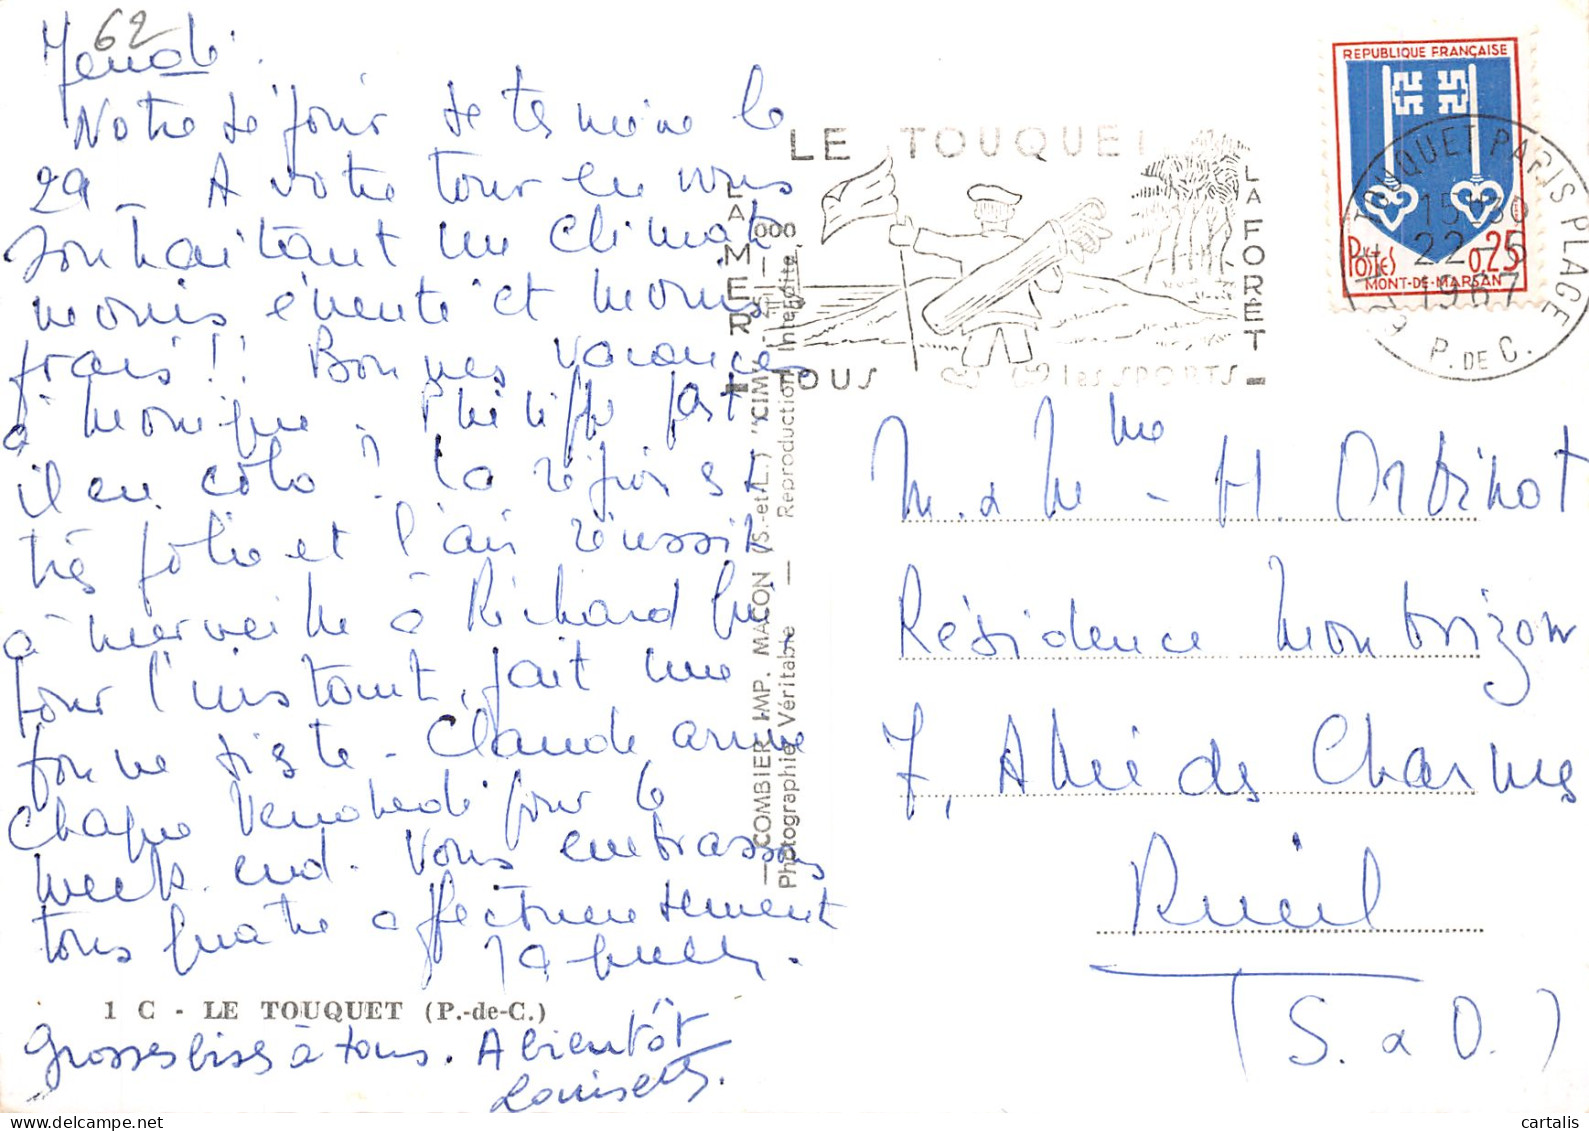 62
Jeudi.
Notre séjour se termine le
29 - A votre tour en vous
souhaitant un climat
moins éventé et moins
frais !! Bonnes vacances
à Monique. Philippe part
il en colo ? la région est
très jolie et l'air réussit
à merveille à Richard qui
pour l'instant, fait une
bonne sieste - Claude arrive
chaque Vendredi pour le
week end. Vous embrassons
tous quatre affectueusement
1 C - LE TOUQUET (P.-de-C.)
Grosses bises à tous. A bientôt
Louisette.
— COMBIER IMP. MACON (S.-et-L.) "CIM"
Photographie Véritable — Reproduction Interdite.
LE TOUQUET
LA MER
LA FORÊT
TOUS les SPORTS
REPUBLIQUE FRANÇAISE
POSTES 0,25
MONT-DE-MARSAN
LE TOUQUET PARIS PLAGE
15H30
22 - 6
1967
P. DE C.
M. & Mme - H. Orbinot
Résidence Montbrizon
7, Allée des Charmes
Rueil
(S. & O.)
cartalis